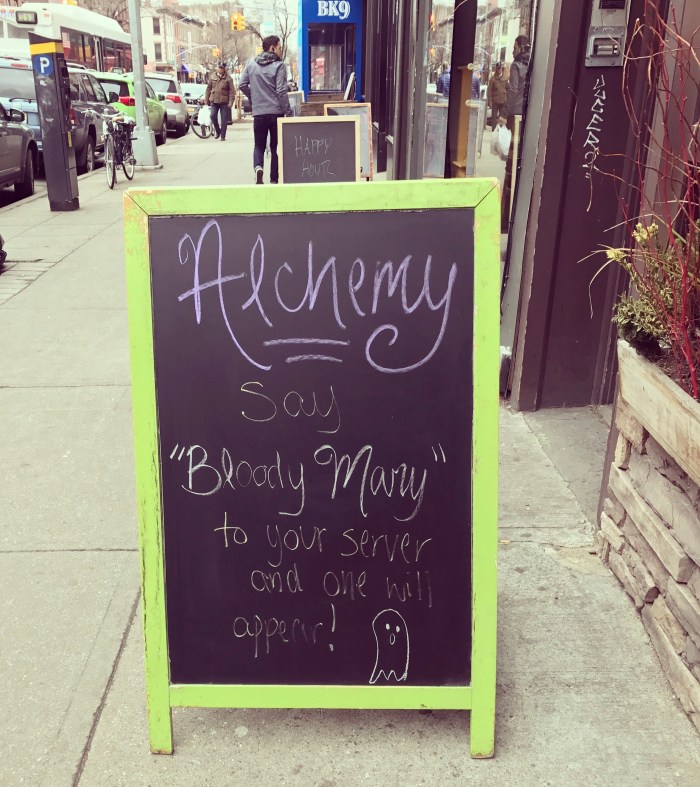 BK9
P
HAPPY
HOUR
Alchemy
Say
"Bloody Mary"
to your server
and one will
appear!